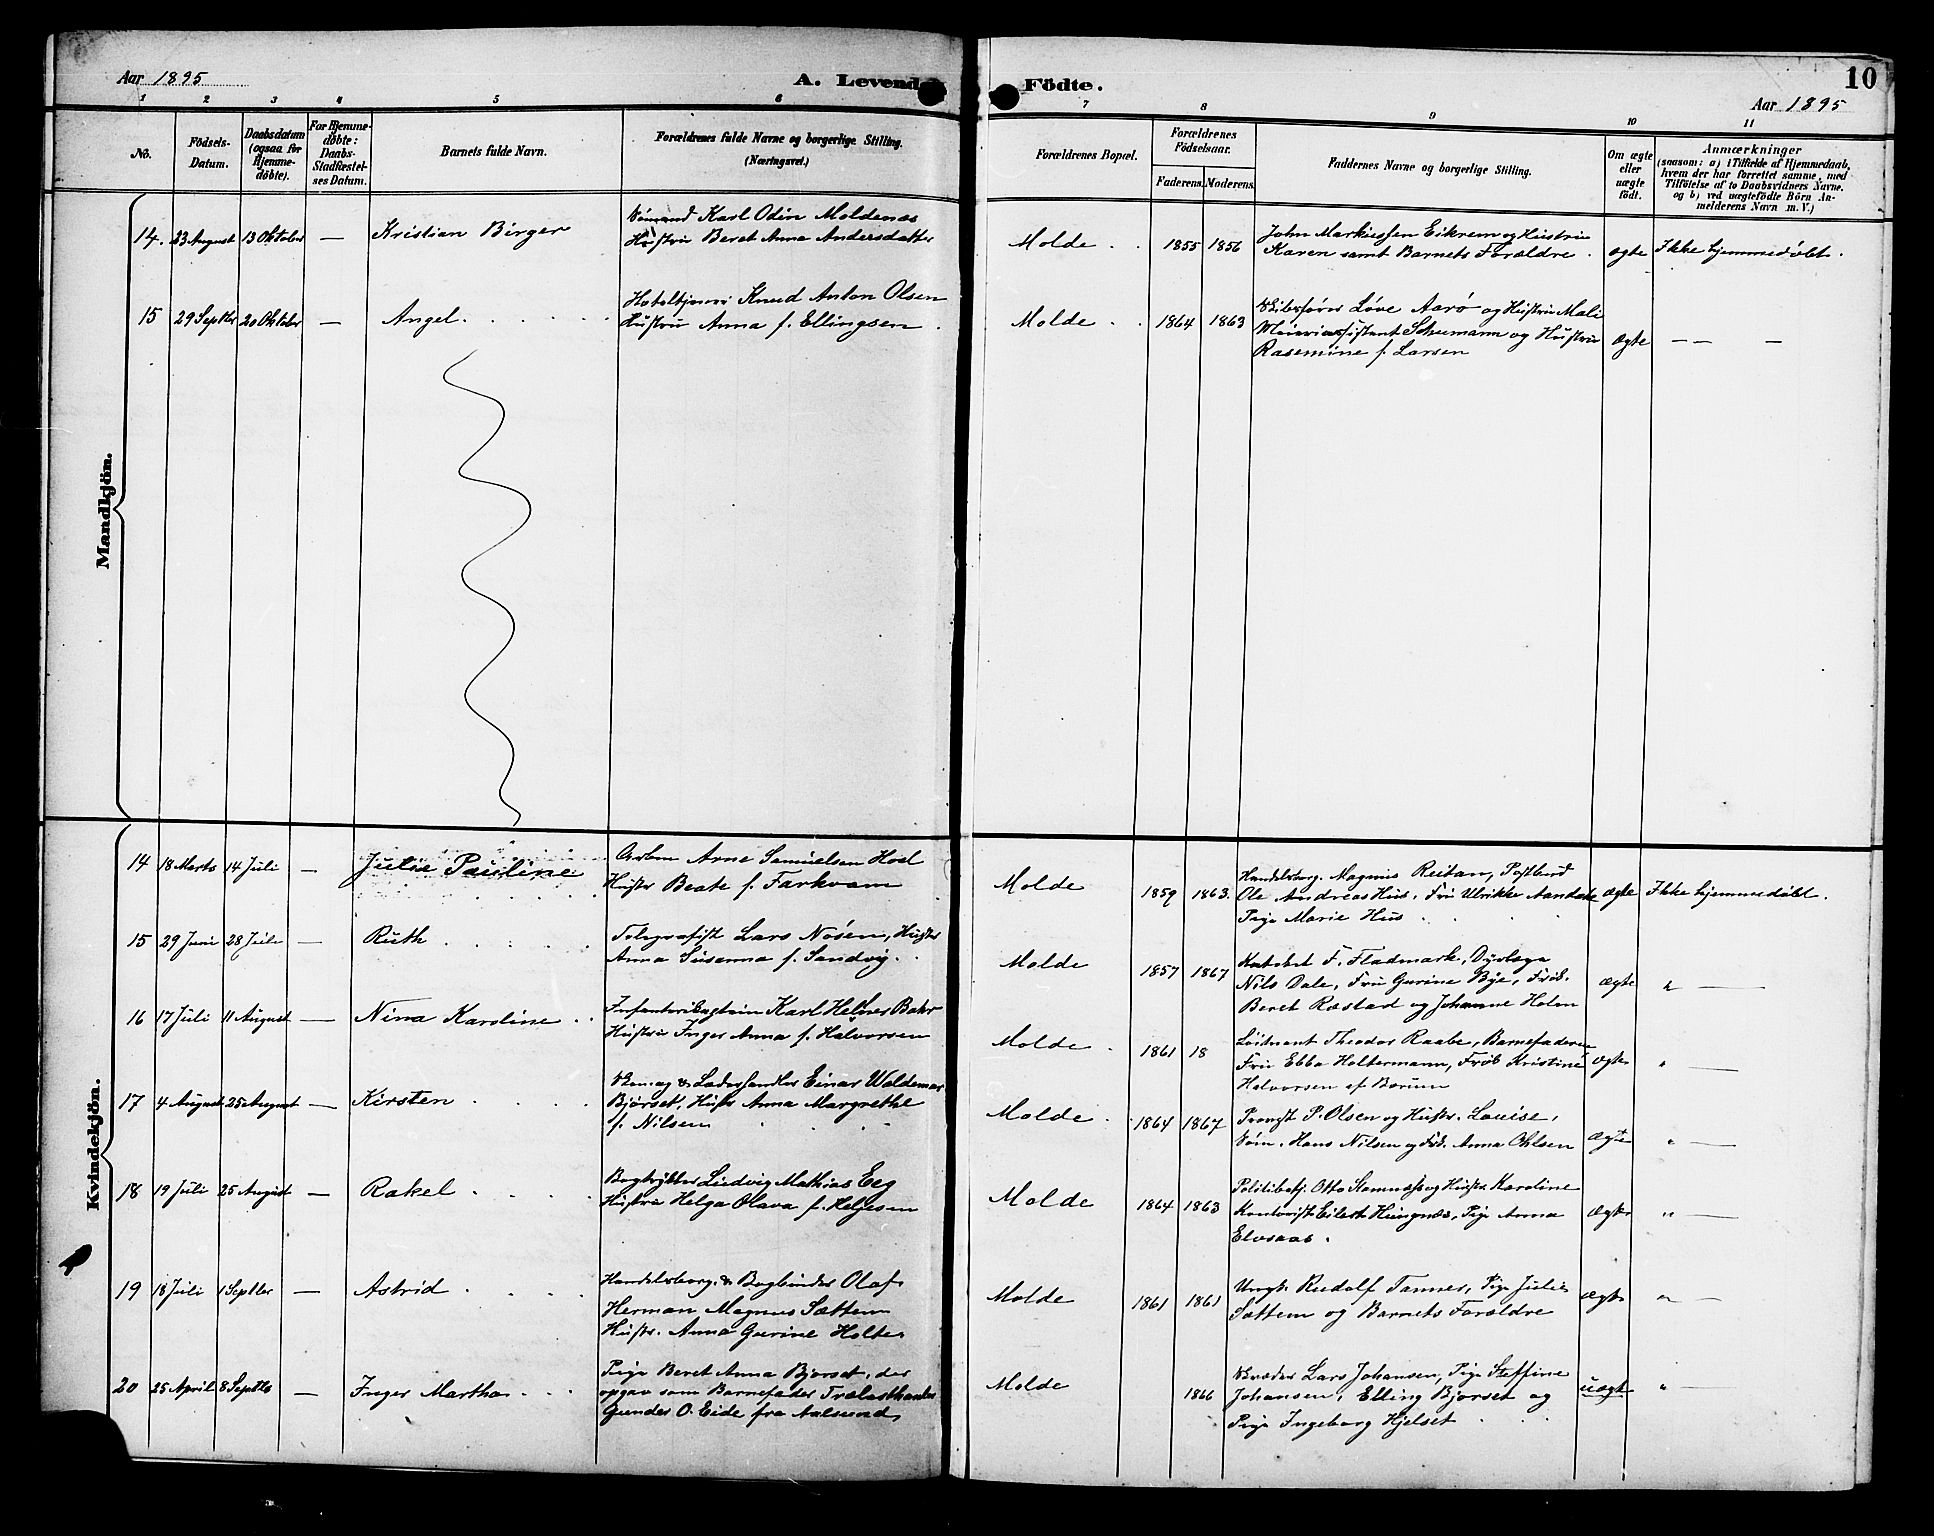 Aar 1895
A. Levende
Födte.
10
Aar 1895
1 2 3 4 5 6 7 8 9 10 11
No.
Födsels-
Datum.
Daabsdatum
(ogsaa for
Hjemme-
döbte).
For Hjemme-
döbte:
Daabs-
Stadfæstel-
ses Datum.
Barnets fulde Navn.
Forældrenes fulde Navne og borgerlige Stilling.
(Næringsvei.)
Forældrenes Bopæl.
Forældrenes
Födselsaar.
Faderens. Moderens.
Faddernes Navne og borgerlige Stilling.
Om ægte
eller
uægte
födt.
Anmærkninger
(saasom: a) i Tilfælde af Hjemmedaab,
hvem der har forrettet samme, med
Tilföielse af to Daabsvidners Navne,
og b) ved uægtefödte Börn An-
melderens Navn m. V.)
Mandkjön.
14. 23 August 13 Oktober — Kristian Birger
Sömand Karl Odin Moldenæs
Hustru Beret Anna Andersdatter
Molde . . 1855 1856
John Markussen Eikrem og Hustru
Karen samt Barnets Forældre .
ægte Ikke hjemmedøbt .
15 29 Septbr 20 Oktober — Angel . . . . .
Hoteltjener Knud Anton Olsen
Hustru Anna f. Ellingsen .
Molde . . 1864 1863
Skibsfører Løve Aarø og Hustru Mali
Meieriassistent Schumann og Hustru
Rasemine f. Larsen
ægte — — —
Kvindekjön.
14 18 Marts 14 Juli — Julia Pauline
Arbm Arne Samuelsen Hoel
Hustr Beate f. Farkvam
Molde 1859 1863.
Handelsborg. Magnus Reitan, Postbud
Ole Andreas Hus, Fru Ulrikke Aandahl
Pige Marie Hus
ægte Ikke hjemmedøbt.
15 29 Juni 28 Juli — Ruth . . . . .
Telegrafist Lars Nösen, Hustr
Anna Susanna f. Sandvig.
Molde 1857 1867
F. Fladmark, Dyrlæge
Nils Dale, Fru Gurine Bye, Frøk.
Beret Ræstad og Johanne Holm
ægte " —
16 17 Juli 11 August — Nina Karoline . .
Karl Helmer Bahr
Hustru Inger Anna f. Halvorsen
Molde . 1861 18
Löitnant Theodor Raabe, Barnefaderen
Fru Ebba Holtermann, Frøk Kristine
Halvorsen af Bærum
ægte " —
17 4 August 25 August — Kirsten . . . .
Skomag & Læderhandler Einar Waldemar
Bjørset, Hustr Anna Margrethe
f. Nilsen
Molde . 1864 1867
Provst P. Olsen og Hustr. Louise,
Søm. Hans Nilsen og Frk. Anna Ohlsen
ægte " —
18 19 Juli 25 August — Rakel . . . .
Bogtrykker Ludvig Mathias Eeg
Hustru Helga Olava f. Helgesen
Molde 1864 1863
Politibetj. Otto Stamnæss og Hustr Karoline
Kontorist Eilert Hungnæs, Pige Anna
Elvsaas .
ægte " —
19 18 Juli 1 Septber — Astrid . . . .
Handelsborg. & Bogbinder Olaf
Herman Magnus Sættem
Hustr. Anna Gurine Holte
Molde 1861 1861
Ungk. Rudolf Tanner, Pige Julie
Sættem og Barnets Forældre
ægte " —
20 25 April 8 Septbr — Inger Martha . . .
Pige Beret Anna Bjørset, der
opgav som Barnefader Trælasthandler
Gunder O. Eide fra Aalesund,
Molde 1866
Skræder Lars Johansen, Pige Steffine
Johansen, Elling Bjørset og
Pige Ingeborg Hjelset
uægte " —